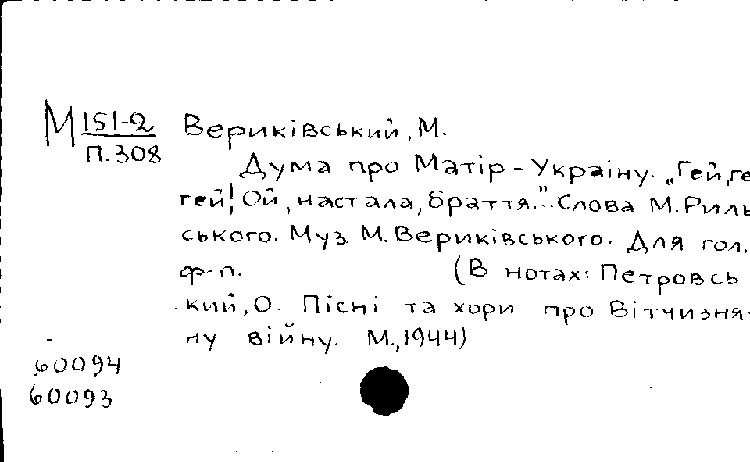 М 151-2 Вериківський, М.
П.308
Дума про Матір-Украіну. „Гей, ге
гей! Ой, настала, браття." Слова М. Риль
ського. Муз. М. Вериківського. Для гол.
ф-п. (В нотах: Петровсь
кий, О. Пісні та хори про Вітчизня
ну війну. М., 1944)
60094
60093